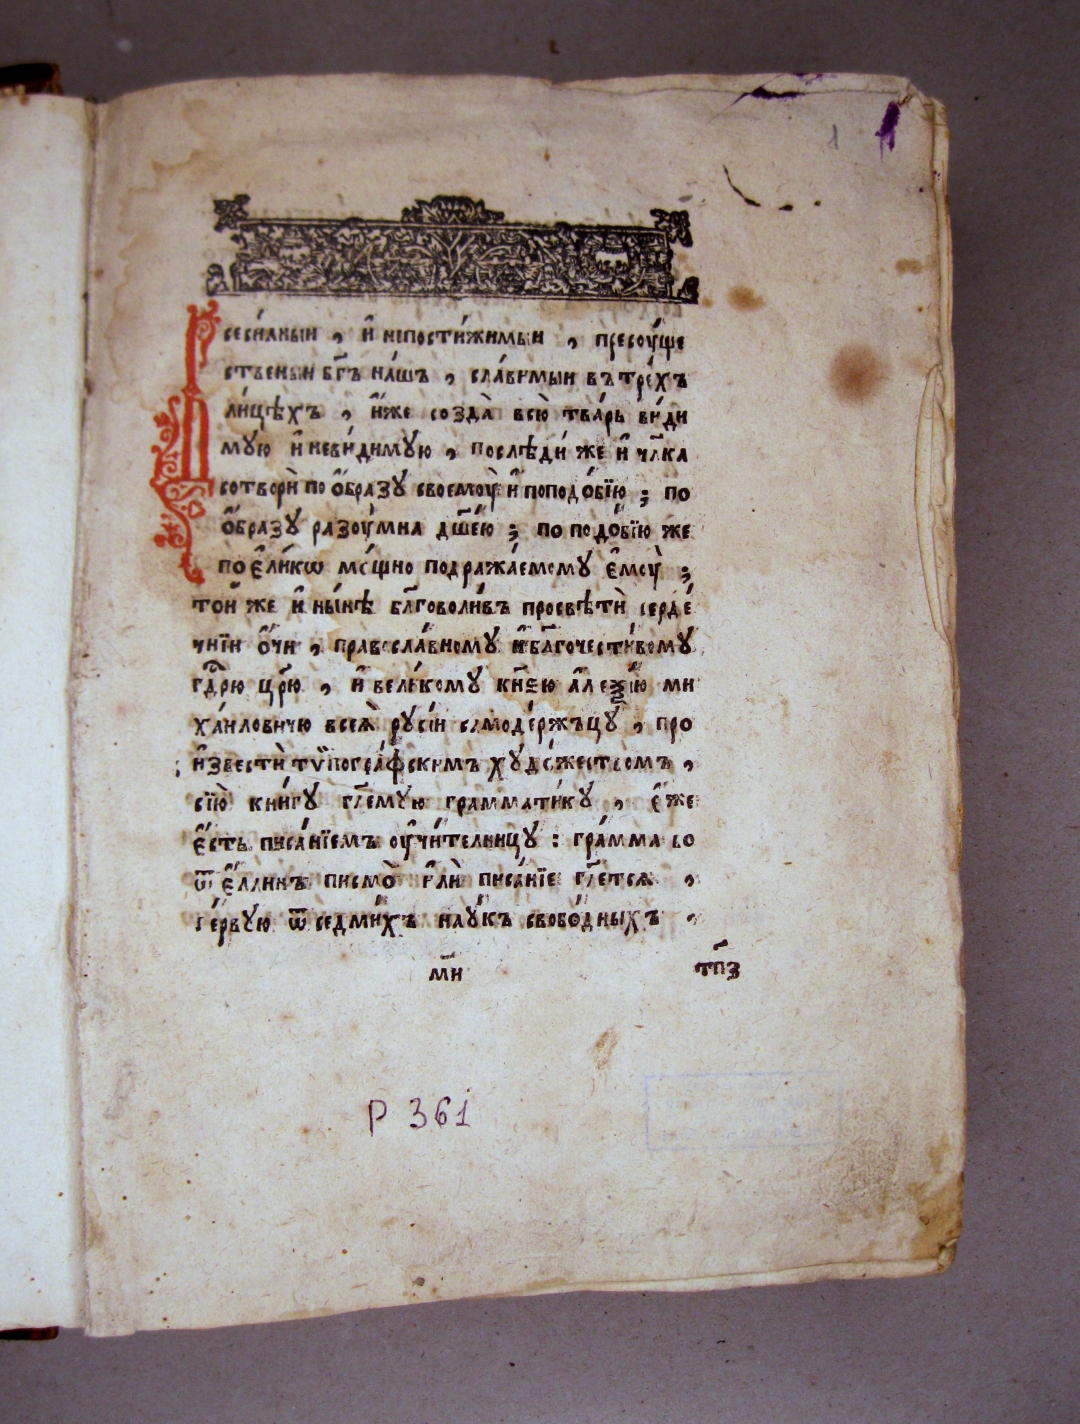 1
Всеси́лныи , и҆ непости́жимыи , пресоу́ще
ственыи бг҃ъ на́шъ , сла́вимыи въ тре́хъ
ли́цѣхъ , и҆́же созда̀ всю̀ тва́рь ви́ди
мую и҆ неви́димую , послѣди́ же и҆ чл҃ка
сотворѝ по ѻ҆́бразꙋ своемоу̀ и҆ по подо́бїю ; по
ѻ҆́бразꙋ разоу́мна дш҃е́ю ; по подо́бїю же
по є҆ли́кѡ мо́щно подража́емомꙋ є҆моу̀ ;
то́и же и҆ ны́нѣ бл҃говоли́въ просвѣтѝ серде́
чнїи ѻ҆́чи , правосла́вномꙋ и҆ бл҃гочести́вомꙋ
гдⷭ҇рю цр҃ю , и҆ вели́комꙋ кн҃ѕю а҆леѯі́ю ми
ха́иловичю всеѧ̀ рꙋсі́и самоде́ржъцꙋ , про
и҆звестѝ тѷпогра́фскимъ хꙋдо́жествомъ ,
сїю̀ кни́гꙋ гл҃емꙋю грамматі́кꙋ , є҆́же
є҆́сть писа́нїемъ оу҆чи́телницꙋ : гра́мма бо
ѿ є҆́ллинъ писмо̀ и҆лѝ писа́нїе гл҃етсѧ ,
пе́рвꙋю ѿ седми́хъ наꙋ́къ свобо́дныхъ ,
м҃и
тп҃з
Р 361